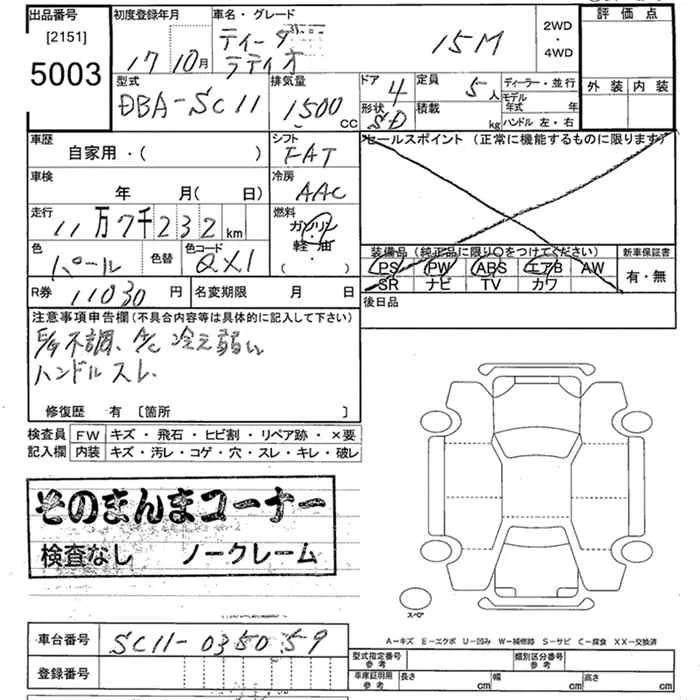 出品番号 [2151] 5003
初度登録年月 17 10月
車名・グレード ティーダ ラティオ 15M
2WD・4WD
評価点
外装 内装
型式 DBA-SC11
排気量 1500cc
ドア 4 形状 SD
定員 5人
積載 kg
ディーラー・並行
モデル年式 年
ハンドル 左・右
車歴 自家用・( )
シフト FAT
セールスポイント (正常に機能するものに限ります)
車検 年 月(日)
冷房 AAC
走行 11万7千232km
燃料 ガソリン・軽油・( )
色 パール 色替
色コード QX1
装備品 (純正品に限り○をつけてください)
新車保証書 有・無
PS PW ABS エアB AW
SR ナビ TV カワ
R券 11030円
名変期限 月 日
後日品
注意事項申告欄(不具合内容等は具体的に記入して下さい)
E/g不調、A/C 冷え弱い
ハンドルスレ
修復歴 有 [箇所 ]
検査員 FW キズ・飛石・ヒビ割・リペア跡・×要
記入欄 内装 キズ・汚レ・コゲ・穴・スレ・キレ・破レ
そのまんまコーナー
検査なし ノークレーム
スペア
A-キズ E-エクボ U-凹み W-補修跡 S-サビ C-腐食 XX-交換済
車台番号 SC11-035059
型式指定番号 参考
類別区分番号 参考
登録番号
車庫証明用 参考 長さ cm 幅 cm 高さ cm